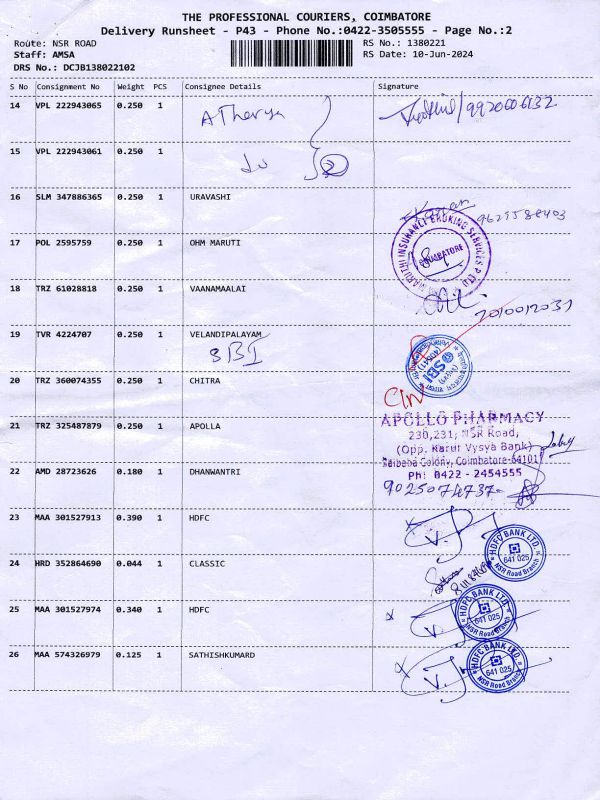 THE PROFESSIONAL COURIERS, COIMBATORE
Delivery Runsheet - P43 - Phone No.:0422-3505555 - Page No.:2
Route: NSR ROAD
RS No.: 1380221
Staff: AMSA
RS Date: 10-Jun-2024
DRS No.: DCJB138022102
S No Consignment No Weight PCS Consignee Details Signature
14 VPL 222943065 0.250 1 Atharva
15 VPL 222943061 0.250 1 2
16 SLM 347886365 0.250 1 URAVASHI
17 POL 2595759 0.250 1 OHM MARUTI
MARUTHI INSURANCE BROKING SERVICES P LTD
COIMBATORE
18 TRZ 61028818 0.250 1 VAANAMAALAI
19 TVR 4224707 0.250 1 VELANDIPALAYAM
SBI
SBI
20 TRZ 360074355 0.250 1 CHITRA
21 TRZ 325487879 0.250 1 APOLLA
APOLLO PHARMACY
230,231, NSR Road,
(Opp. Karur Vysya Bank)
Saibaba Colony, Coimbatore-641011
Ph: 0422 - 2454555
22 AMD 28723626 0.180 1 DHANWANTRI
23 MAA 301527913 0.390 1 HDFC
HDFC BANK LTD.
641 025
NSR Road Branch
24 HRD 352864690 0.044 1 CLASSIC
25 MAA 301527974 0.340 1 HDFC
HDFC BANK LTD.
641 025
NSR Road Branch
26 MAA 574326979 0.125 1 SATHISHKUMARD
HDFC BANK LTD.
641 025
NSR Road Branch